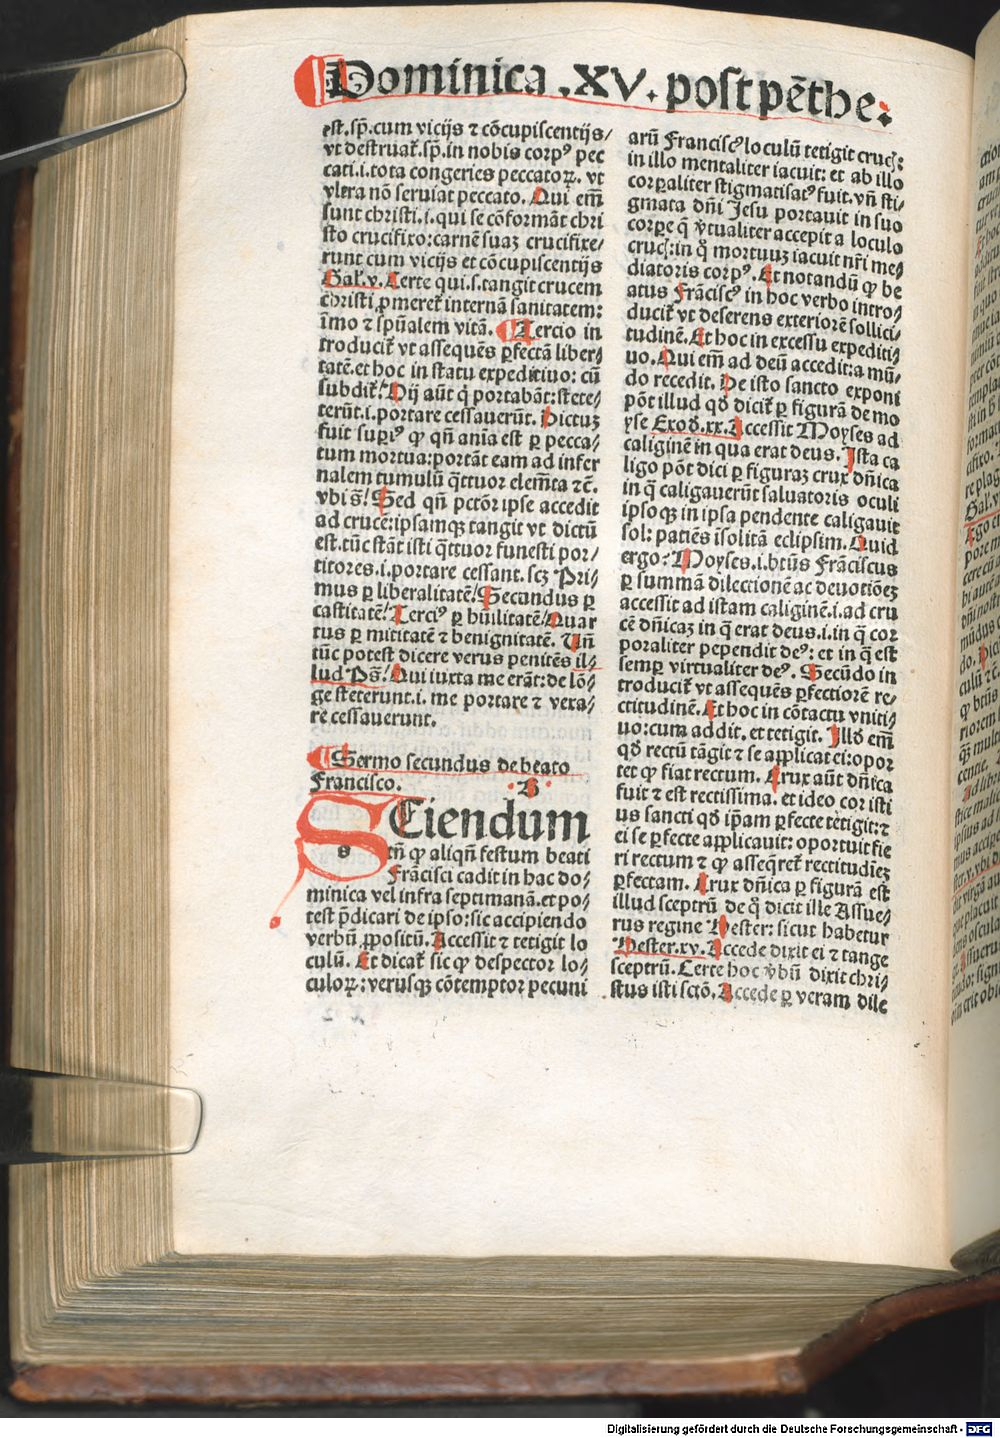 Dominica .XV. post pēthe:
est.sp̄.cum vicijs ⁊ cōcupiscentijs/
vt destruat᷑.sp̄.in nobis corpꝰ pec
cati.i.tota congeries peccatoꝝ. vt
vltra nō seruiat peccato. Qui em̄
sunt christi.i.qui se cōformāt chri
sto crucifixo:carnē suaꝫ crucifixe/
runt cum vicijs et cōcupiscentijs
Gal᷑.v. Certe qui.s.tangit crucem
christi ꝓmeret᷑ internā sanitatem:
īmo ⁊ spūalem vitā. Tercio in
troducit᷑ vt assequēs ꝑfectā liber/
tatē.et hoc in statu expeditiuo: cū
subdit᷑! Hij aūt q̇ portabāt:stete/
terūt.i.portare cessauerūt. Dictuꝫ
fuit supiꝰ ꝙ qn̄ aīa est ꝑ pecca/
tum mortua:portāt eam ad infer
nalem tumulū q̄ttuor elemēta ⁊c̄.
vbi s̄! Sed qn̄ pctōr ipse accedit
ad cruce:ipsamqꝫ tangit vt dictū
est.tūc stāt isti q̄ttuor funesti por/
titores.i.portare cessant.scꝫ Pri/
mus ꝑ liberalitatē! Secundus ꝑ
castitatē! Terciꝰ ꝑ hūilitatē! Quar
tus ꝑ mititatē ⁊ benignitatē. Vn̄
tūc potest dicere verus penitēs il/
lud Ps̄! Qui iuxta me erāt: de lō/
ge steterunt.i. me portare ⁊ vexa/
re cessauerunt.
Sermo secundus de beato
Francisco. .B.
SCiendum
s tn̄ ꝙ aliqn̄ festum beati
Frācisci cadit in hac do/
minica vel infra septimanā.et po/
test p̄dicari de ipso:sic accipiendo
verbū ꝓpositū. Accessit ⁊ tetigit lo
culū. Et dicat᷑ sic ꝙ despector lo/
culoꝝ: verusqꝫ cōtemptor pecuni
arū Franciscꝰ loculū tetigit cruc̄:
in illo mentaliter iacuit: et ab illo
corꝑaliter stigmatisatꝰ fuit. vn̄ sti/
gmata dn̄i Jesu portauit in suo
corꝑe q̄ v̇tualiter accepit a loculo
cruc̄:in q̊ mortuuꝫ iacuit nr̄i me/
diatoris corpꝰ. Et notandū ꝙ be
atus Frāciscꝰ in hoc verbo intro/
ducit᷑ vt deserens exteriorē sollici/
tudinē. Et hoc in excessu expediti/
uo. Qui em̄ ad deū accedit:a mū/
do recedit. De isto sancto exponi
pōt illud qd̄ dicit᷑ ꝑ figurā de mo
yse Exod̄.xx. Accessit Moyses ad
caliginē in qua erat deus. Ista ca
ligo pōt dici ꝑ figuraꝫ crux dn̄ica
in q̄ caligauerūt saluatoris oculi
ipsoqꝫ in ipsa pendente caligauit
sol: patiēs isolitā eclipsim. Quid
ergo? Moyses.i.btūs Frāciscus
ꝑ summā dilectionē ac deuotiōeꝫ
accessit ad istam caliginē.i.ad cru
cē dn̄icaꝫ in q̄ erat deus.i.in q̄ cor
poraliter pependit deꝰ: et in q̄ est
semꝑ virtualiter deꝰ. Secūdo in
troducit᷑ vt assequēs ꝑfectiorē re/
ctitudinē. Et hoc in cōtactu vniti/
uo:cum addit. et tetigit. Illd̄ em̄
qd̄ rectū tāgit ⁊ se applicat ei:opor
tet ꝙ fiat rectum. Crux aūt dn̄ica
fuit ⁊ est rectissima. et ideo cor isti
us sancti qd̄ ip̄am ꝑfecte tetigit:⁊
ei se ꝑfecte applicauit: oportuit fie
ri rectum ⁊ ꝙ asseq̄ret᷑ rectitudieꝫ
ꝑfectam. Crux dn̄ica ꝑ figurā est
illud sceptrū de q̊ dicit ille Assue/
rus regine Hester: sicut habetur
Hester.xv. Accede dixit ei ⁊ tange
sceptrū. Certe hoc v̇bū dixit chri/
stus isti sctō. Accede ꝑ veram dile